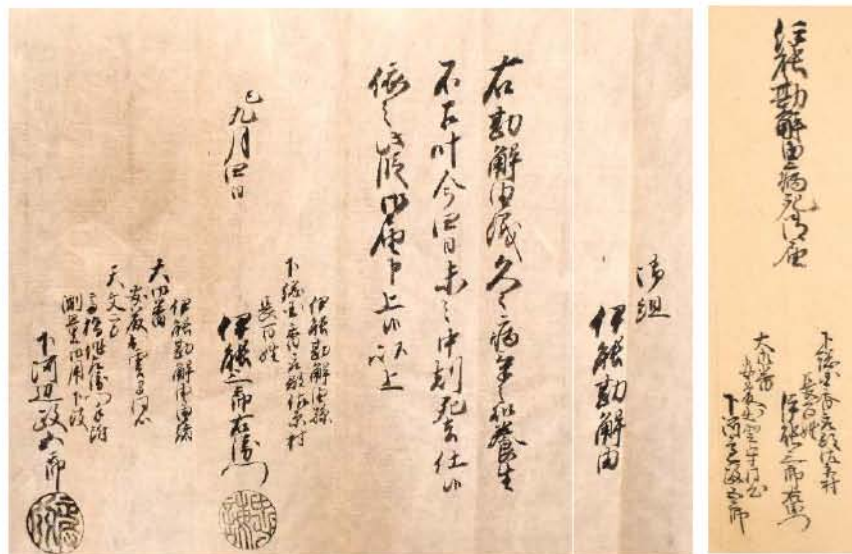 伊能勘解由病死御届
下総国香取郡佐原村
長百姓
伊能三郎右衛門
大御番
下河辺政五郎
御組
伊能勘解由
右勘解由儀久々病気ニ而養生
不相叶今四日未之中刻死去仕候
依之此段御届申上候以上
巳九月四日
伊能勘解由孫
下総国香取郡佐原村
長百姓
伊能三郎右衛門
伊能勘解由由緒
大御番
天文方
測量御用下役
下河辺政五郎